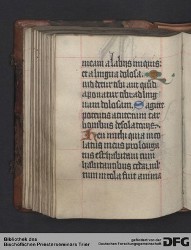 meam a labijs iniquis:
et a lingua dolosa.
Quid detur tibi aut quid
apponatur tibi ad lin
guam dolosam. Sagitte
potentis acute cum car
bonibus desolatorijs.
Heu michi quia inco
latus meus prolonga
tus est habitaui cum
habitantibus cedar mul
tum incola fuit anima
Bibliothek des
Bischöflichen Priesterseminars Trier
gefördert von der
Deutschen Forschungsgemeinschaft
DFG